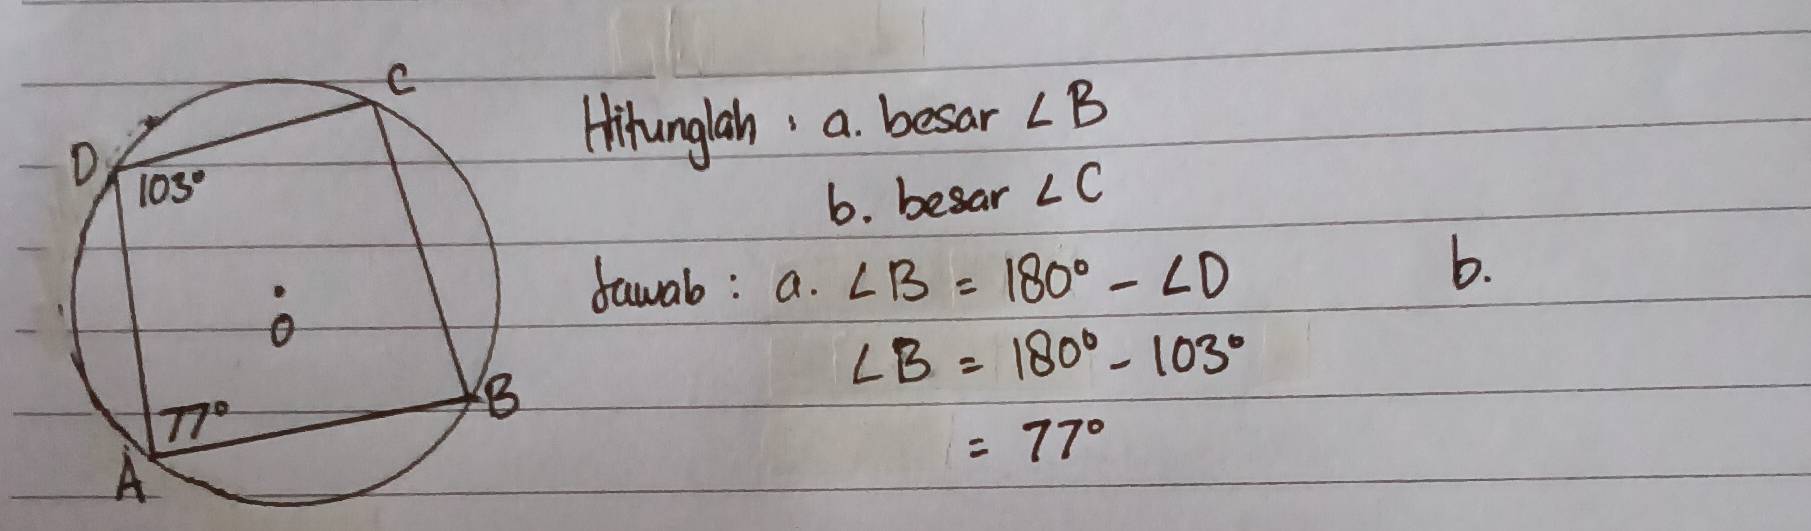 C
D
103°
O
77°
B
A
Hitunglah : a. besar ∠B
b. besar ∠C
Jawab : a. ∠B = 180° - ∠D
∠B = 180° - 103°
= 77°
b.